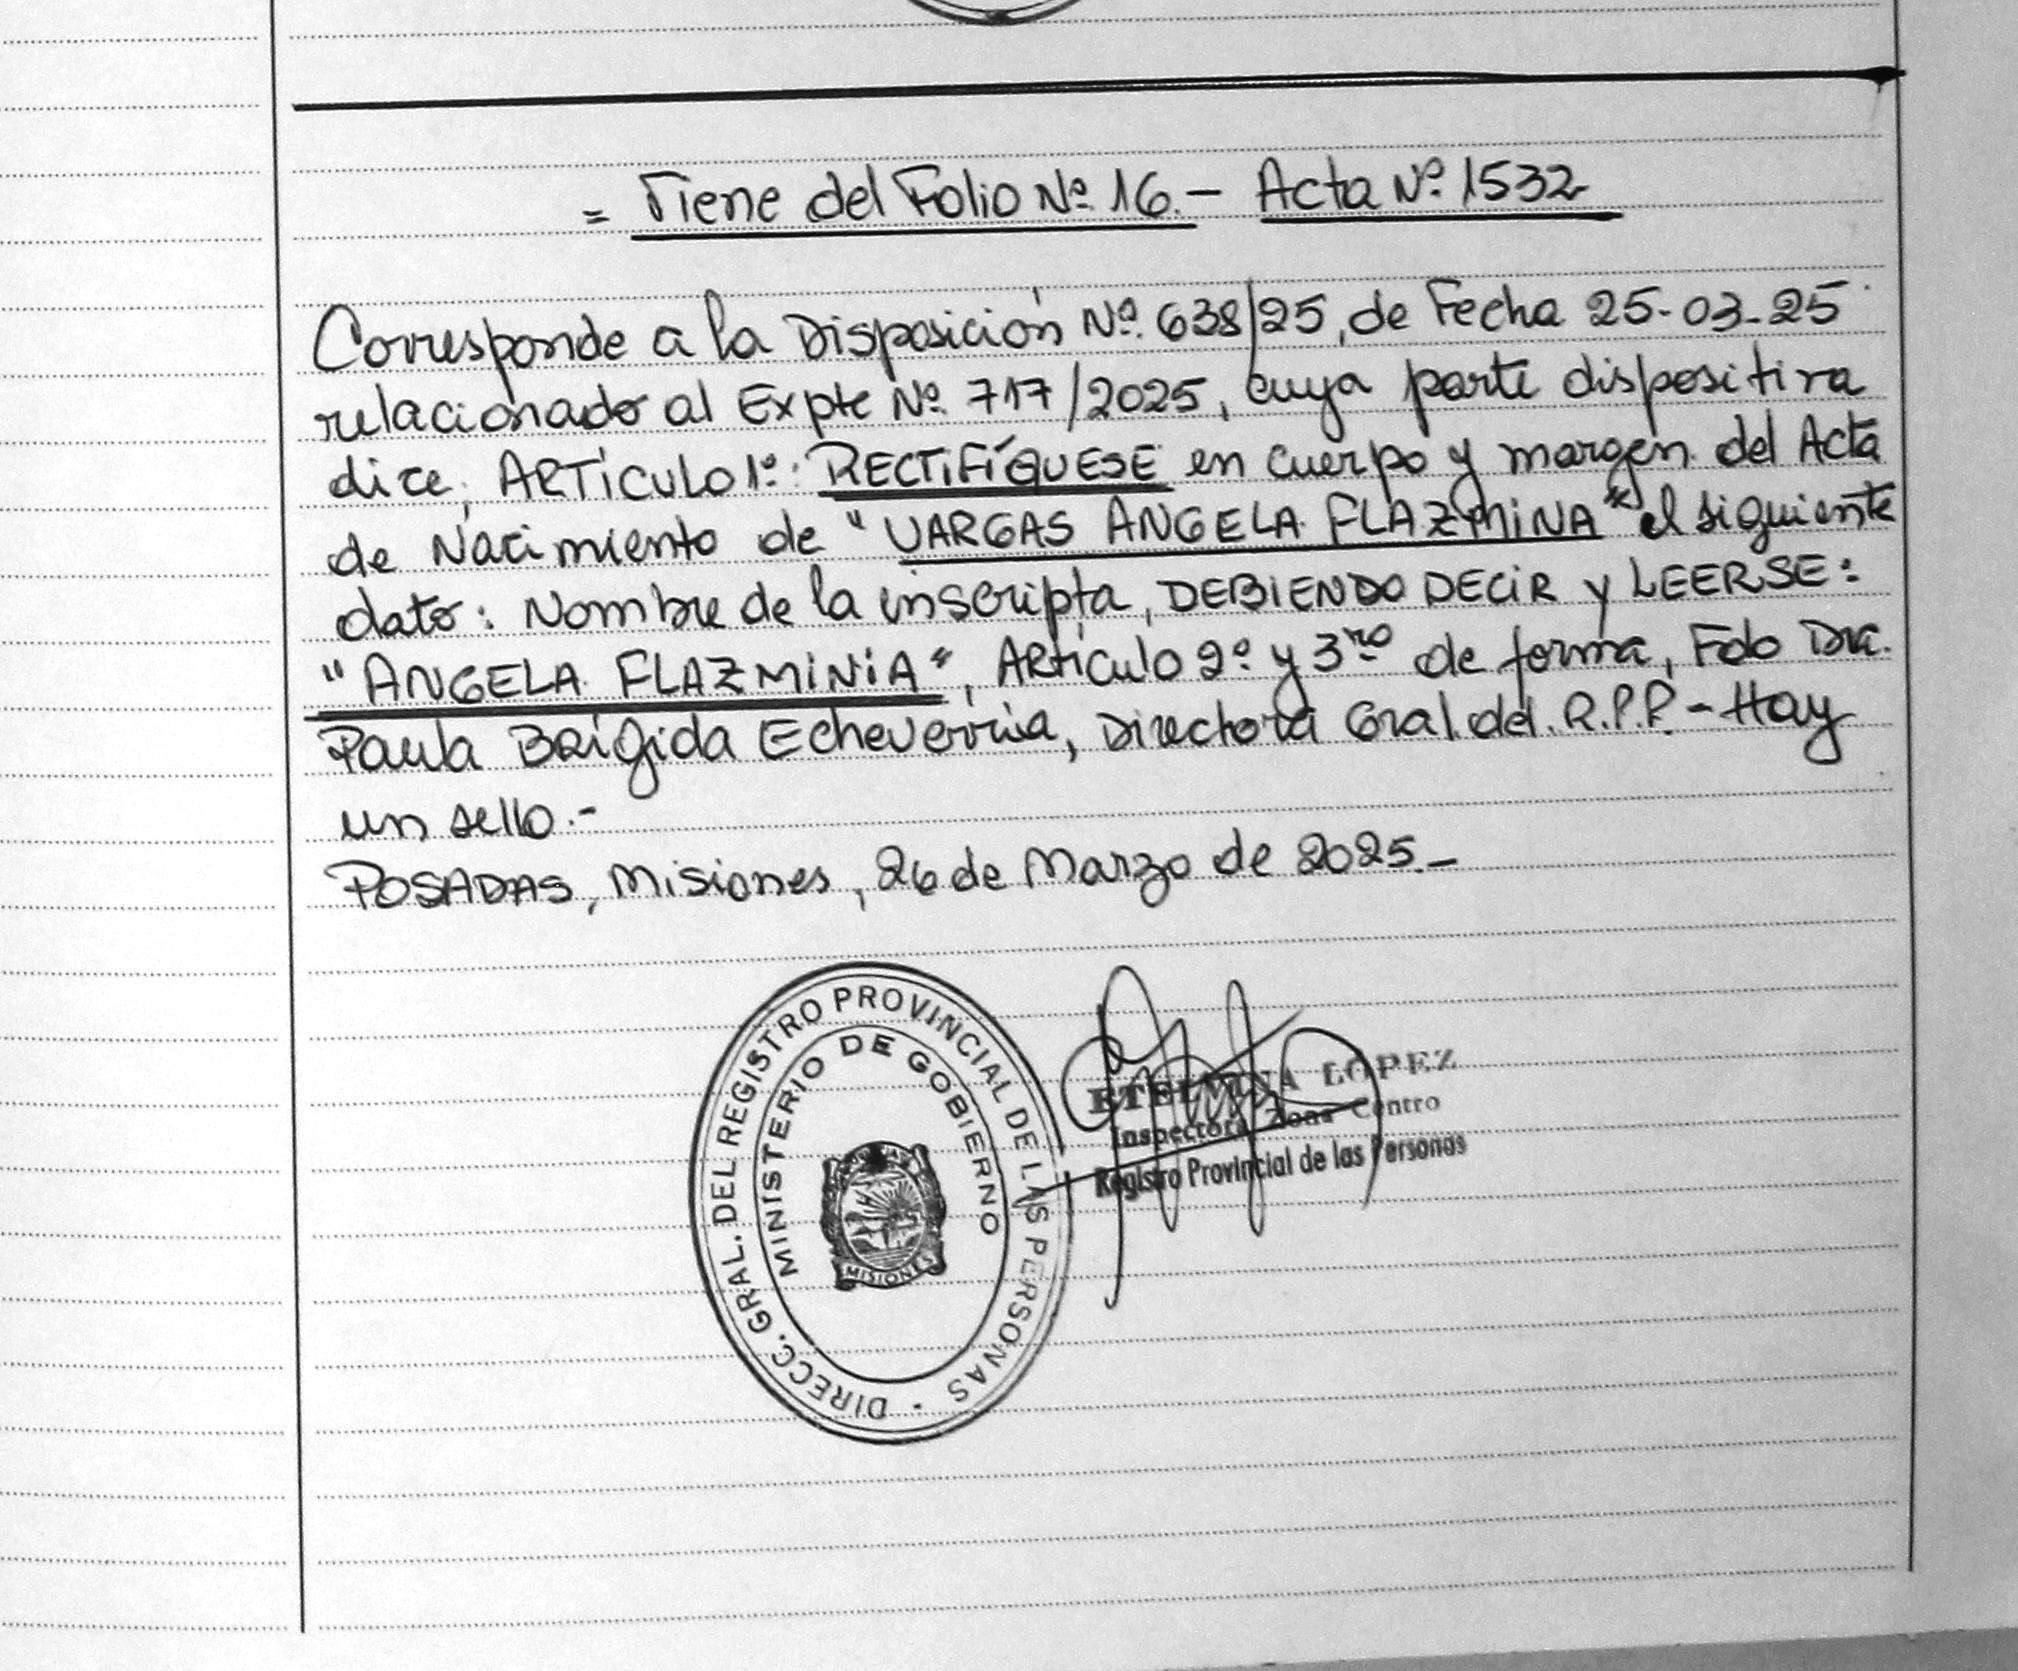 = Viene del Folio Nº 16. - Acta Nº 1532
Corresponde a la Disposición Nº. 638/25, de Fecha 25-03-25
relacionado al Expte Nº. 717/2025, cuya parte dispositiva
dice, ARTÍCULO 1º: RECTIFÍQUESE en cuerpo y margen del Acta
de Nacimiento de "VARGAS ANGELA FLAZMINA" el siguiente
dato: Nombre de la inscripta, DEBIENDO DECIR y LEERSE:
"ANGELA FLAZMINIA", Artículo 2º y 3ro de forma, Fdo Dra.
Paula Brígida Echeverria, Directora Gral. del. R.P.P. - Hay
un sello.-
POSADAS, Misiones, 26 de Marzo de 2025.-
DIRECC. GRAL. DEL REGISTRO PROVINCIAL DE LAS PERSONAS
MINISTERIO DE GOBIERNO
MISIONES
ETELVINA LOPEZ
Inspectora Zona Centro
Registro Provincial de las Personas